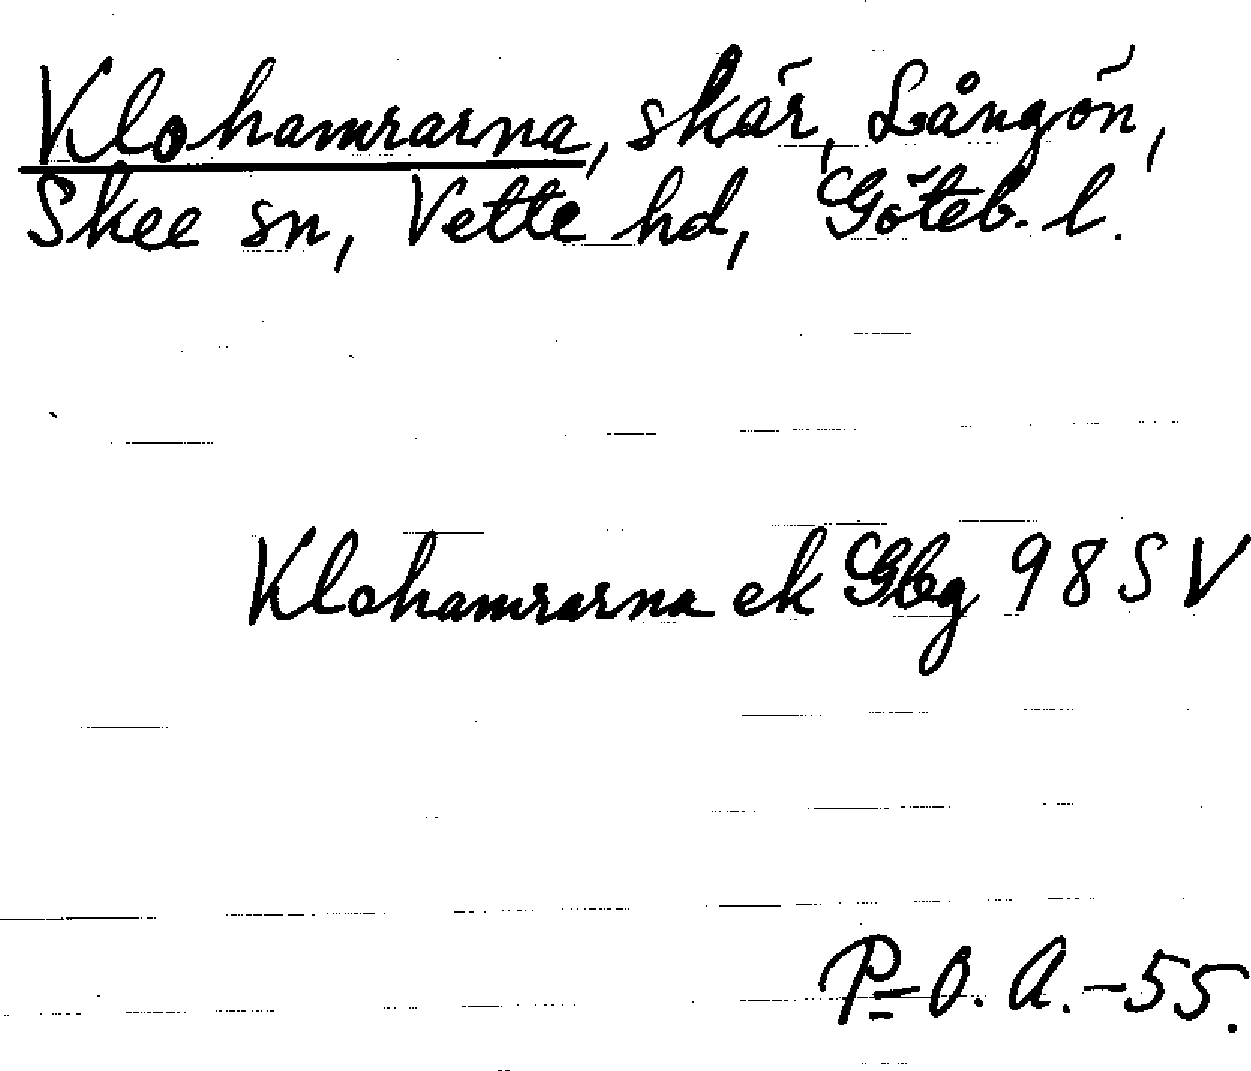 Klohamrarna, skär, Långön,
Skee sn, Vette hd, Göteb. l.
Klohamrarna ek Gbg 98 SV
P-O. A. -55.